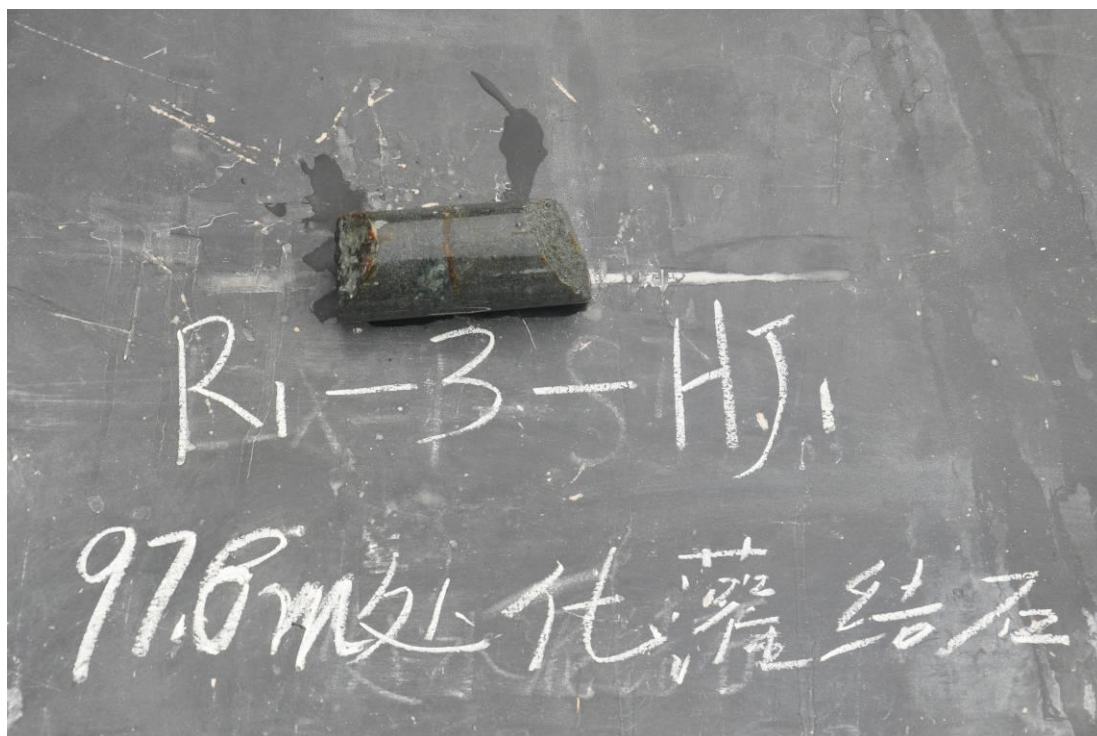 R1-3-HJ1
97.6m处化灌结石